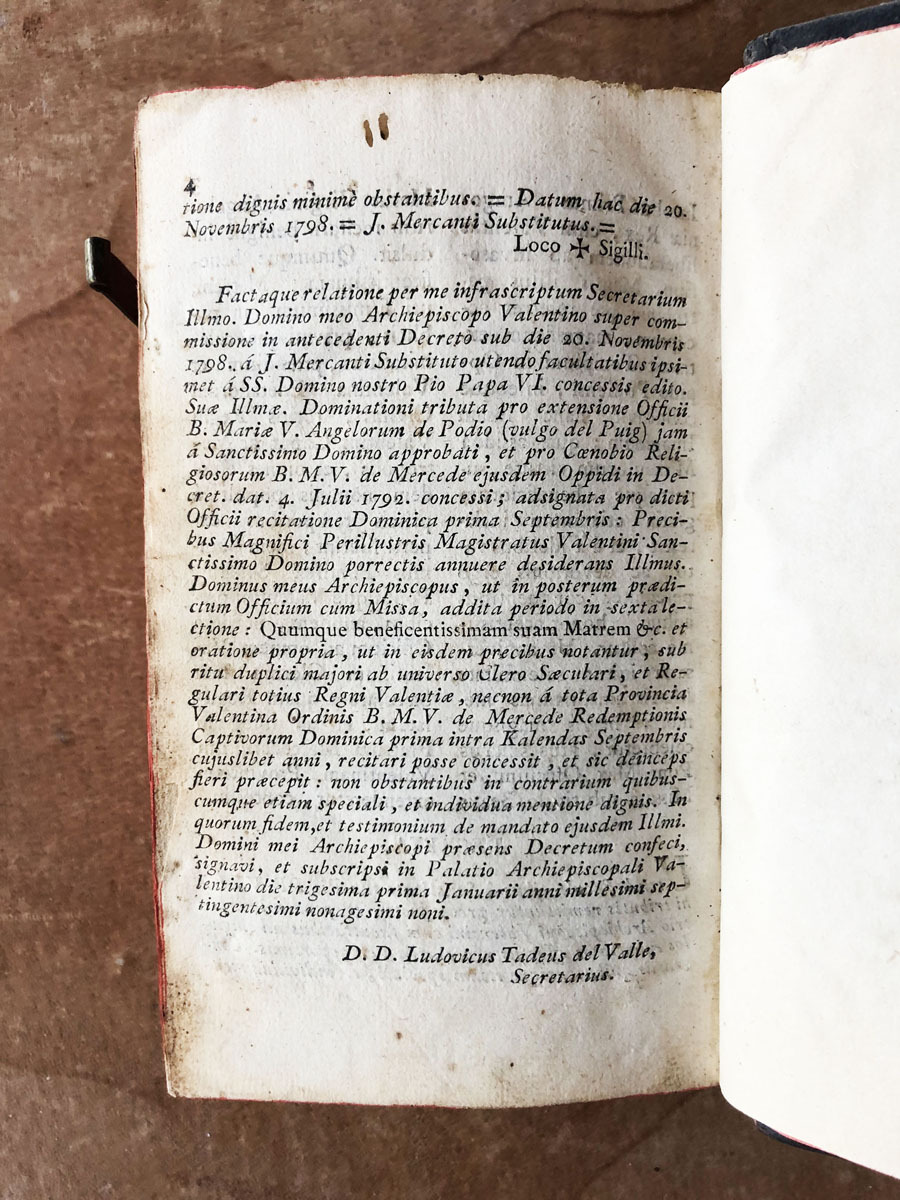 4
tione dignis minimè obstantibus. = Datum hac die 20.
Novembris 1798. = J. Mercanti Substitutus. =
Loco ✠ Sigilli.
Factaque relatione per me infrascriptum Secretarium
Illmo. Domino meo Archiepiscopo Valentino super com-
missione in antecedenti Decreto sub die 20. Novembris
1798. á J. Mercanti Substituto utendo facultatibus ipsi-
met á SS. Domino nostro Pio Papa VI. concessis edito.
Suæ Illmæ. Dominationi tributa pro extensione Officii
B. Mariæ V. Angelorum de Podio (vulgo del Puig) jam
á Sanctissimo Domino approbati, et pro Cœnobio Reli-
giosorum B. M. V. de Mercede ejusdem Oppidi in De-
cret. dat. 4. Julii 1792. concessi; adsignata pro dicti
Officii recitatione Dominica prima Septembris: Preci-
bus Magnifici Perillustris Magistratus Valentini San-
ctissimo Domino porrectis annuere desiderans Illmus.
Dominus meus Archiepiscopus, ut in posterum prædi-
ctum Officium cum Missa, addita periodo in sexta le-
ctione: Quumque beneficentissimam suam Matrem &c. et
oratione propria, ut in eisdem precibus notantur, sub
ritu duplici majori ab universo Clero Sæculari, et Re-
gulari totius Regni Valentiæ, necnon á tota Provincia
Valentina Ordinis B. M. V. de Mercede Redemptionis
Captivorum Dominica prima intra Kalendas Septembris
cujuslibet anni, recitari posse concessit, et sic deinceps
fieri præcepit: non obstantibus in contrarium quibus-
cumque etiam speciali, et individua mentione dignis. In
quorum fidem, et testimonium de mandato ejusdem Illmi.
Domini mei Archiepiscopi præsens Decretum confeci,
signavi, et subscripsi in Palatio Archiepiscopali Va-
lentino die trigesima prima Januarii anni millesimi sep-
tingentesimi nonagesimi noni.
D. D. Ludovicus Tadeus del Valle,
Secretarius.